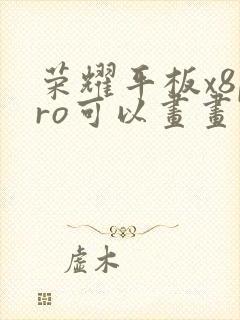 荣耀平板x8p
ro可以畫畫
虛木